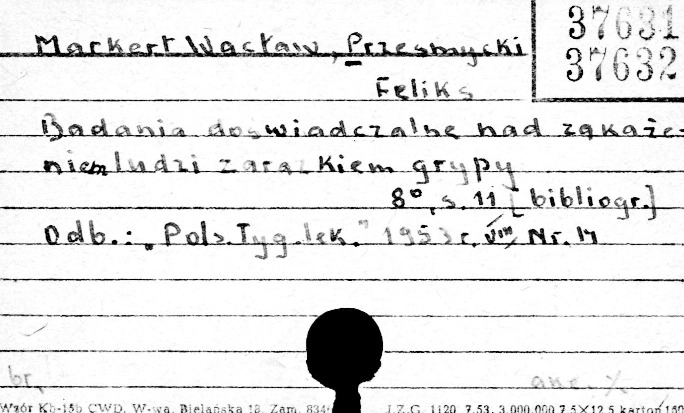 37631
37632
Markert Wacław, Przesmycki
Feliks
Badania doświadczalne nad zakaże-
niem ludzi zarazkiem grypy
8°, s. 11 [bibliogr.]
Odb.: "Pols. Tyg. lek." 1953 r. VIII, Nr. 17
br.
Wzór Kb-15b CWD, W-wa, Bielańska 18, Zam. 834 J.Z.G. 1120 7.53. 3.000.000 7,5×12,5 karton 160